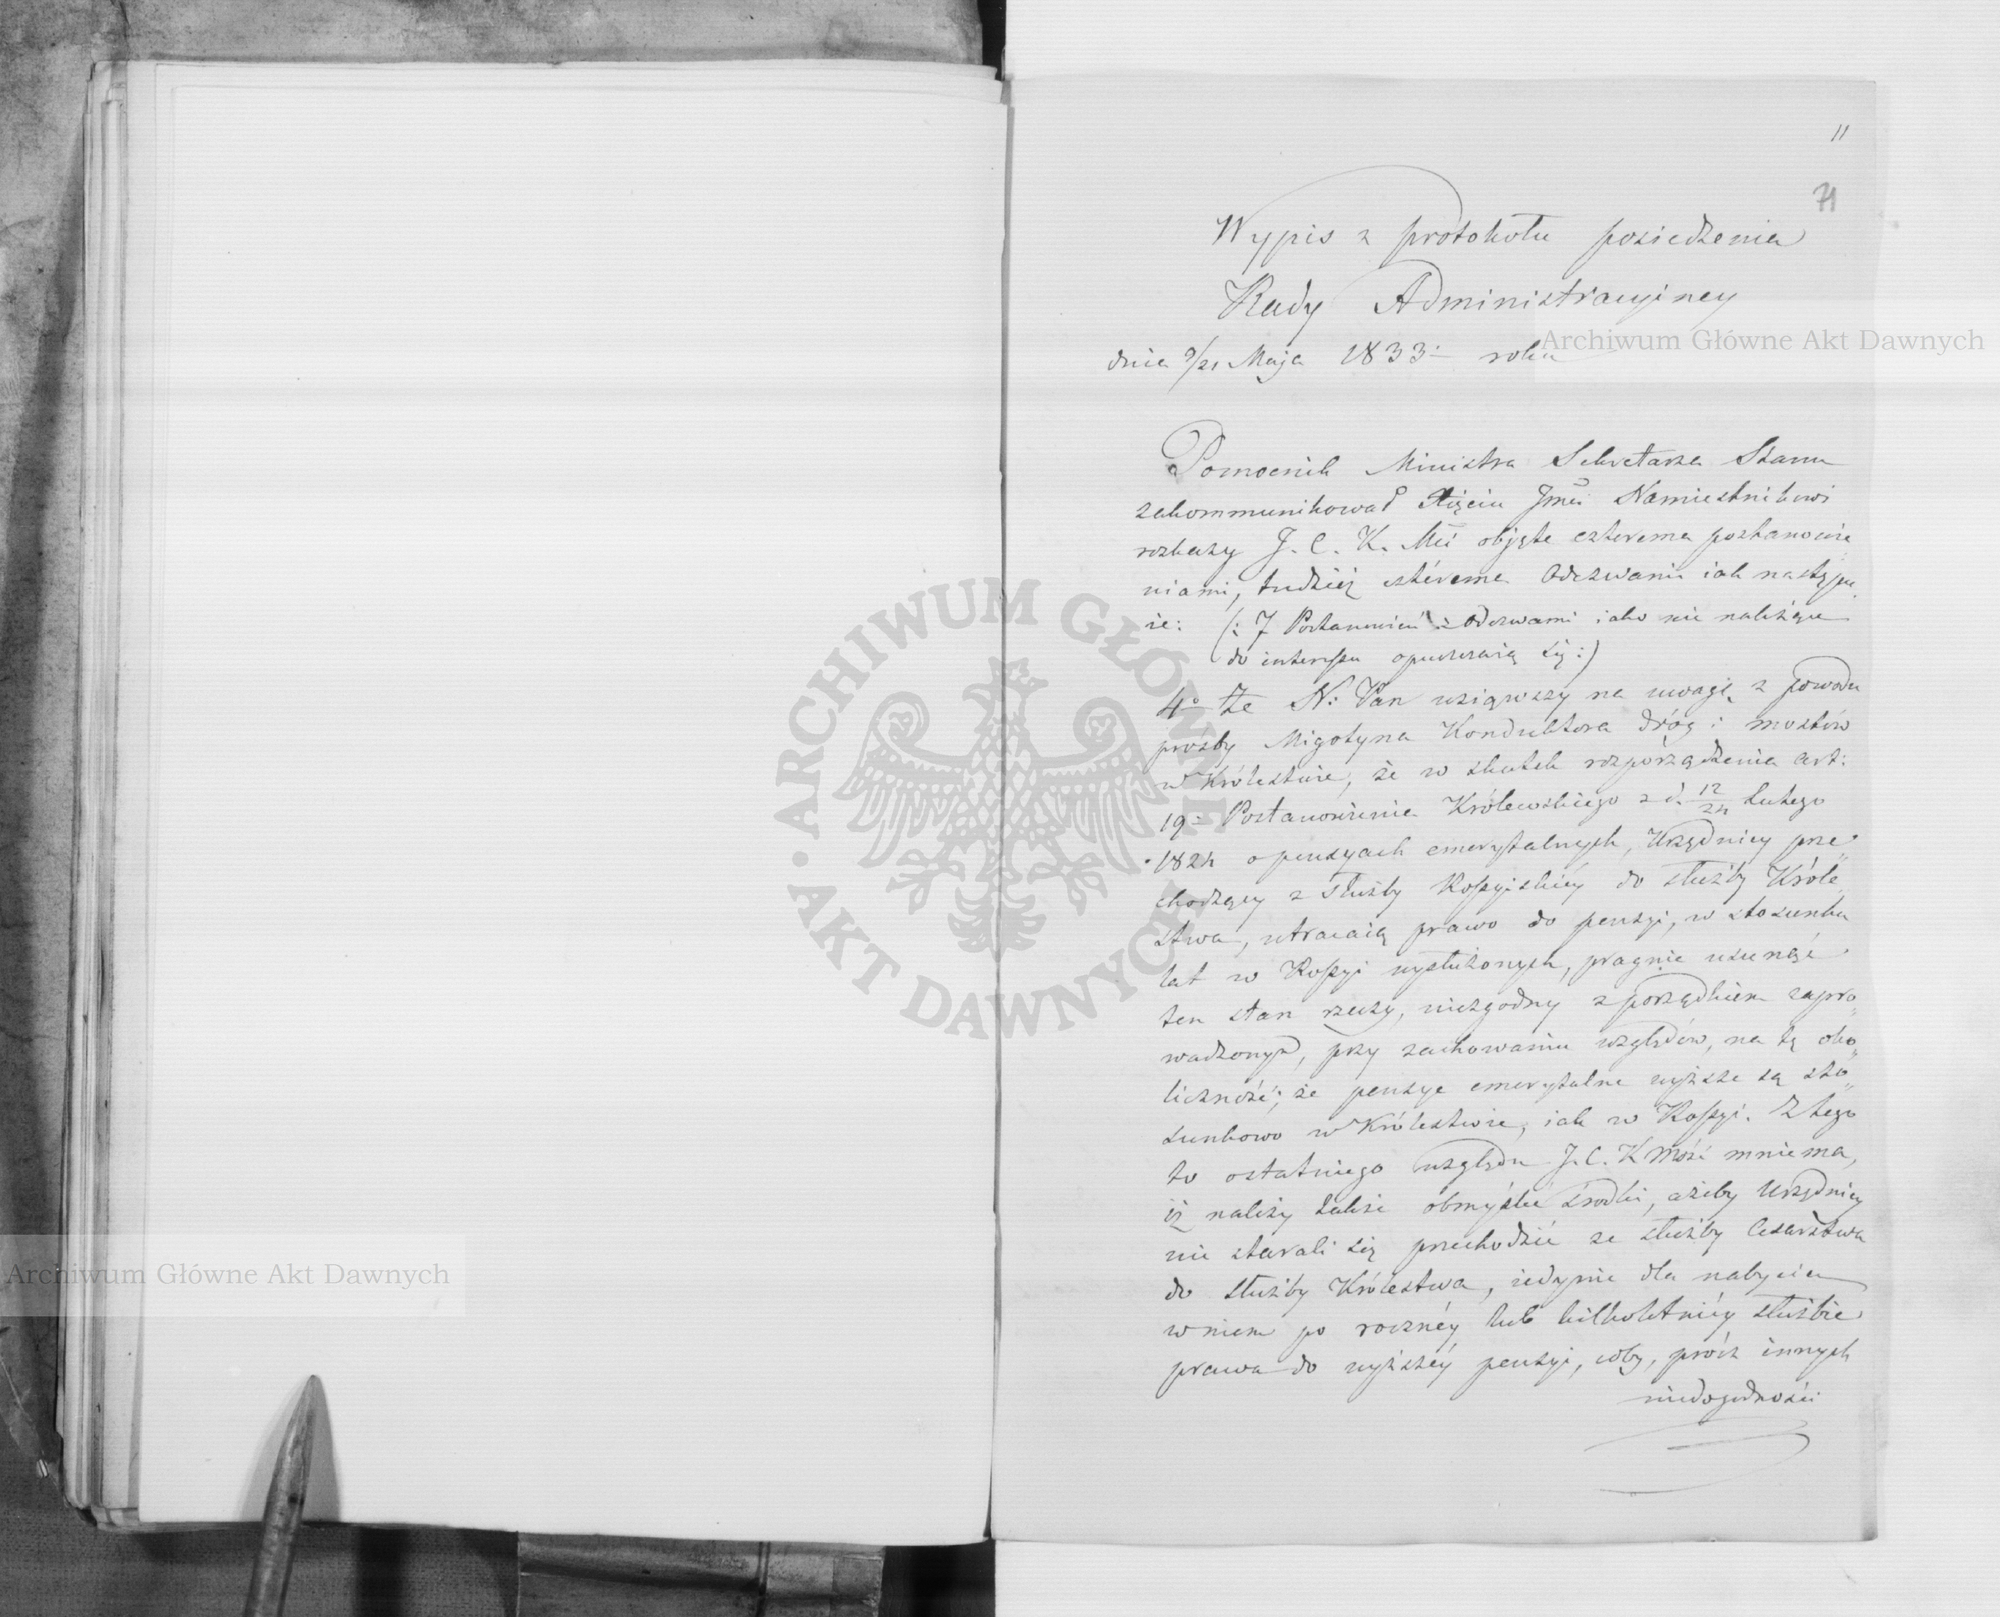 11
71
Wypis z protokołu posiedzenia
Rady Administracyiney
dnia 9/21 Maja 1833 roku
Pomocnik Ministra Sekretarza Stanu
zakommunikował Xięciu Jmci Namiestnikowi
rozkazy J. C. K. Mci objęte czterema postanowie„
niami, tudzież czterema Odezwami iak następu„
ie: (: 7 Postanowień i Odezwami iako nie należące
do interessu opuszczaią się :)
4o Że N: Pan wziąwszy na uwagę, z powodu
prośby Migotyna Konduktora dróg i mostów
w Królestwie, że w skutek rozporządzenia art:
19 Postanowienia Królewskiego z d. 12/24 Lutego
1824 o pensyach emerytalnych, Urzędnicy prze„
chodzący z służby Rossyiskiéy do służby Króle„
stwa, utracaią prawo do pensyi, w stosunku
lat w Rossyi wysłużonych, pragnie usunąć
ten stan rzeczy, niezgodny z porządkiem zapro„
wadzonym, przy zachowaniu względów, na tę oko„
liczność; że pensye emerytalne wyższe są sto„
sunkowo w Królestwie, iak w Rossyi. Z tego
to ostatniego względu J. C. K Mość mniema,
iż należy także obmyślić środki, ażeby Urzędnicy
nie starali się przechodzić ze służby Cesarstwa
do służby Królestwa, iedynie dla nabycia
w niem po rocznéy lub kilkoletniéy służbie
prawa do wyższéy pensyi, coby, prócz innych
niedogodności
Archiwum Główne Akt Dawnych
Archiwum Główne Akt Dawnych
ARCHIWUM GŁÓWNE • AKT DAWNYCH •